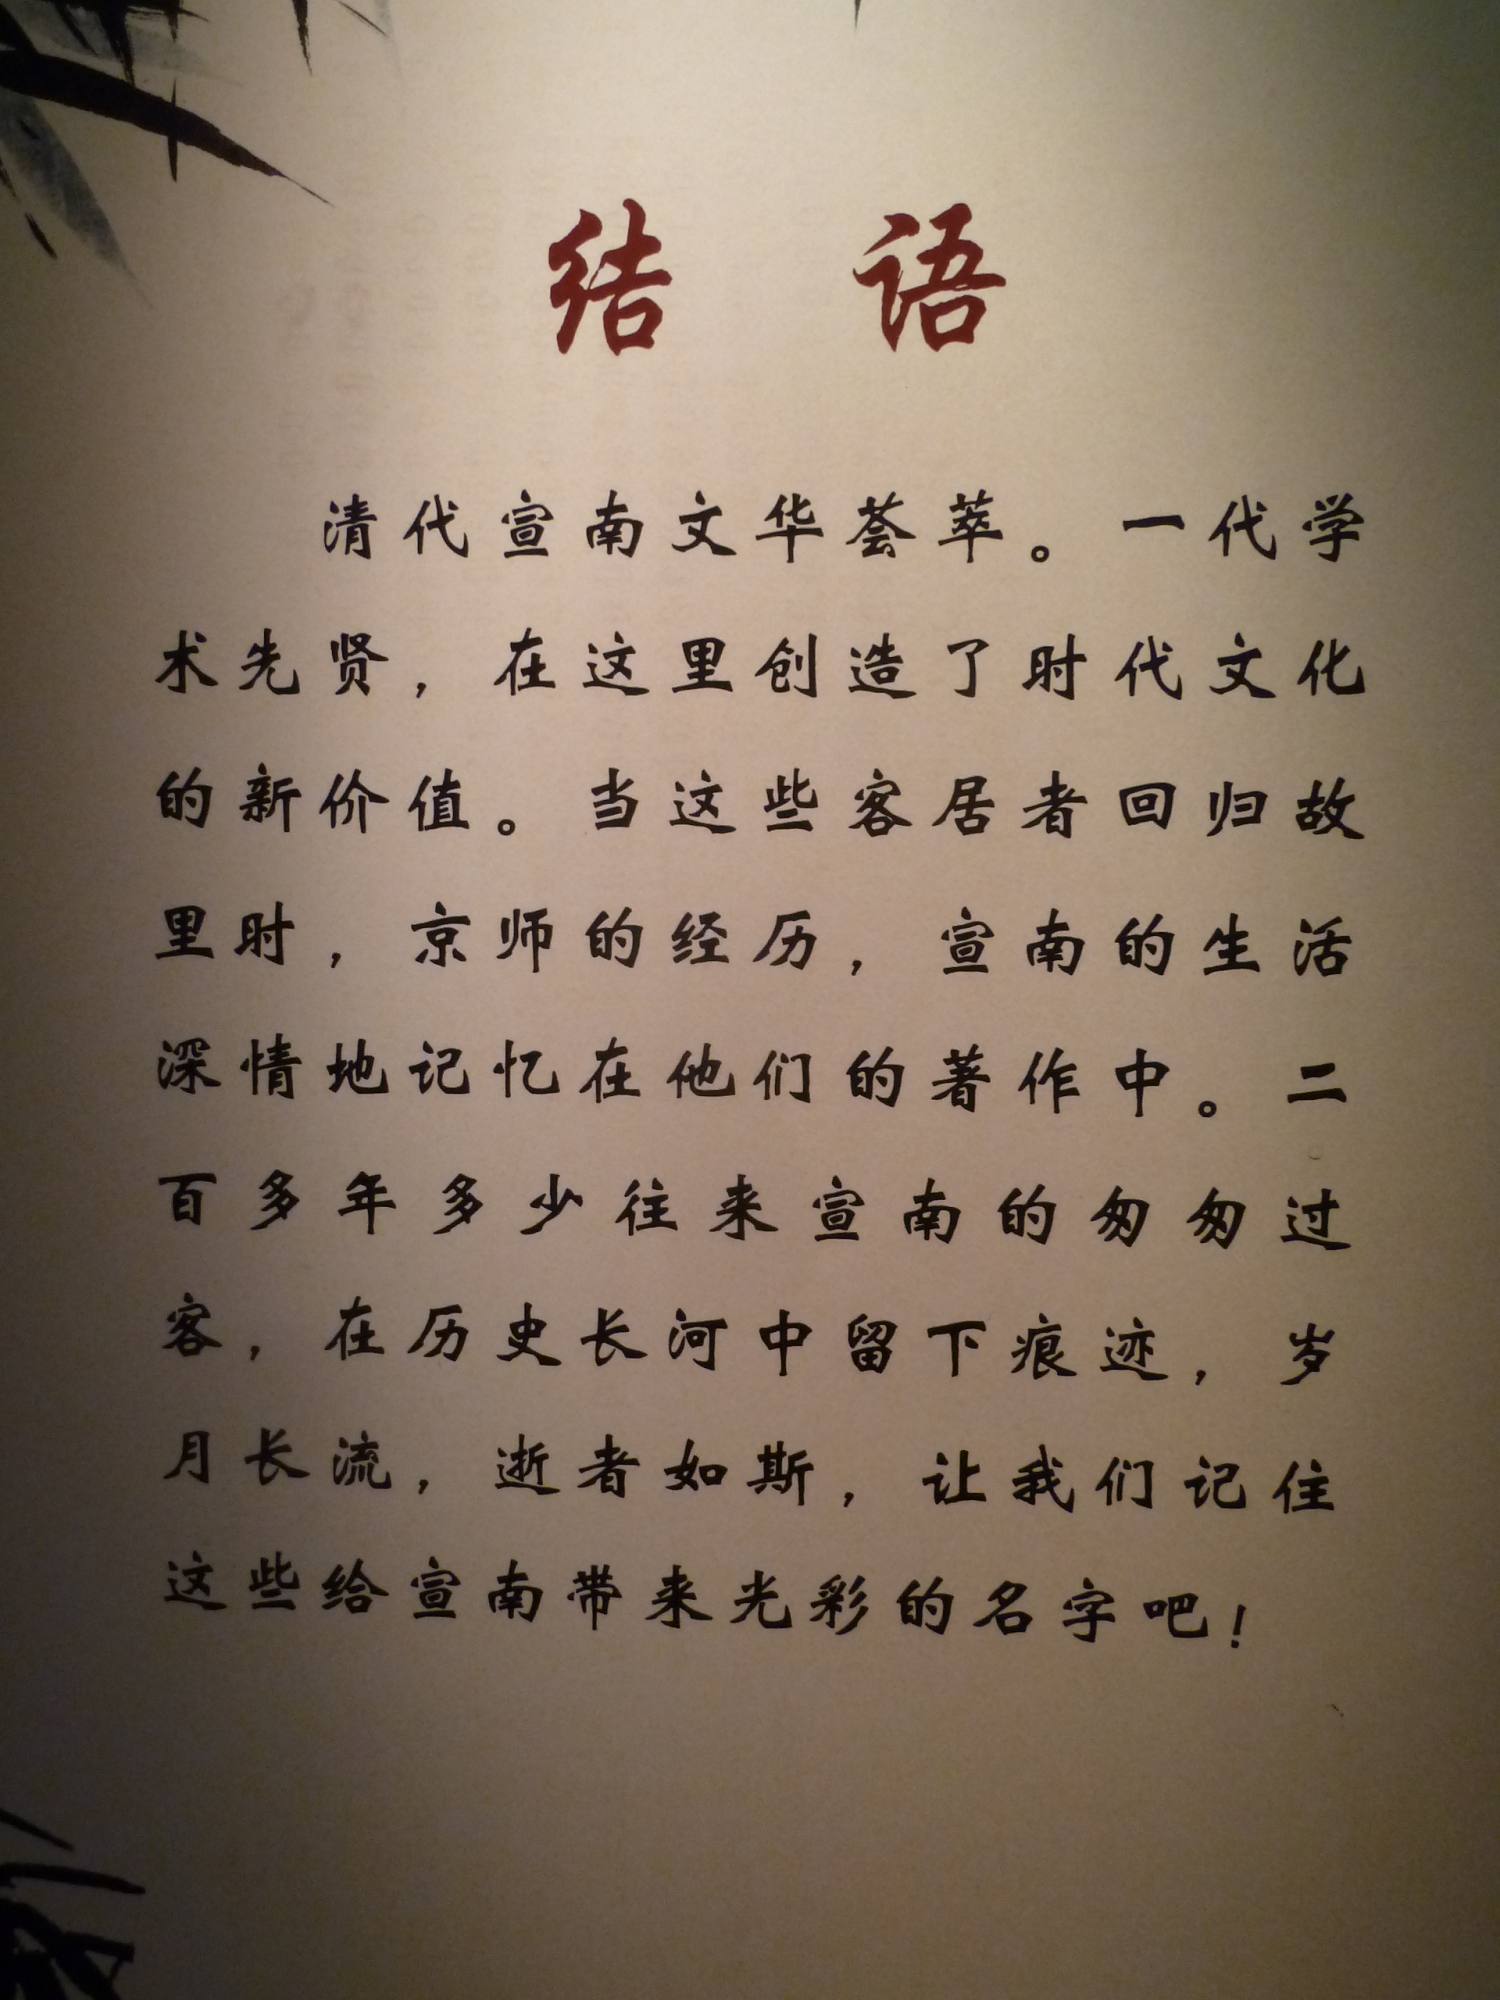 结 语
清代宣南文华荟萃。一代学
术先贤，在这里创造了时代文化
的新价值。当这些客居者回归故
里时，京师的经历，宣南的生活
深情地记忆在他们的著作中。二
百多年多少往来宣南的匆匆过
客，在历史长河中留下痕迹，岁
月长流，逝者如斯，让我们记住
这些给宣南带来光彩的名字吧！